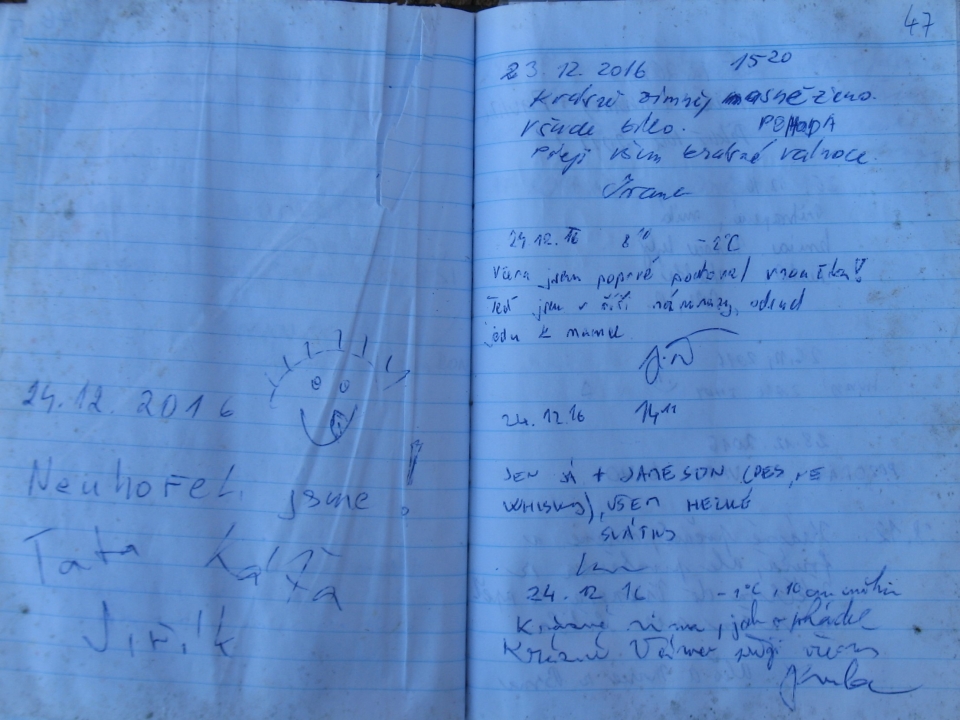 24.12.2016
Neuhořeli jsme!
Táta Káťa
Jiřík
47
23.12.2016 15 20
Krásně zimně, zasněženo.
Všude bílo. POHODA
Přeji všem krásné vánoce.
24.12.16 8 10 -2°C
Včera jsem poprvé pochoval vnoučka!
Teď jsem v říši námrazy, odsud
jedu k mamce
24.12.16 14 11
JEN JÁ + JAMESON (PES, NE
WHISKY), VŠEM HEZKÉ
SVÁTKY
24.12 16 -1°C, 10 cm sněhu
Krásná zima, jak v pohádce
Krásné Vánoce přeji všem